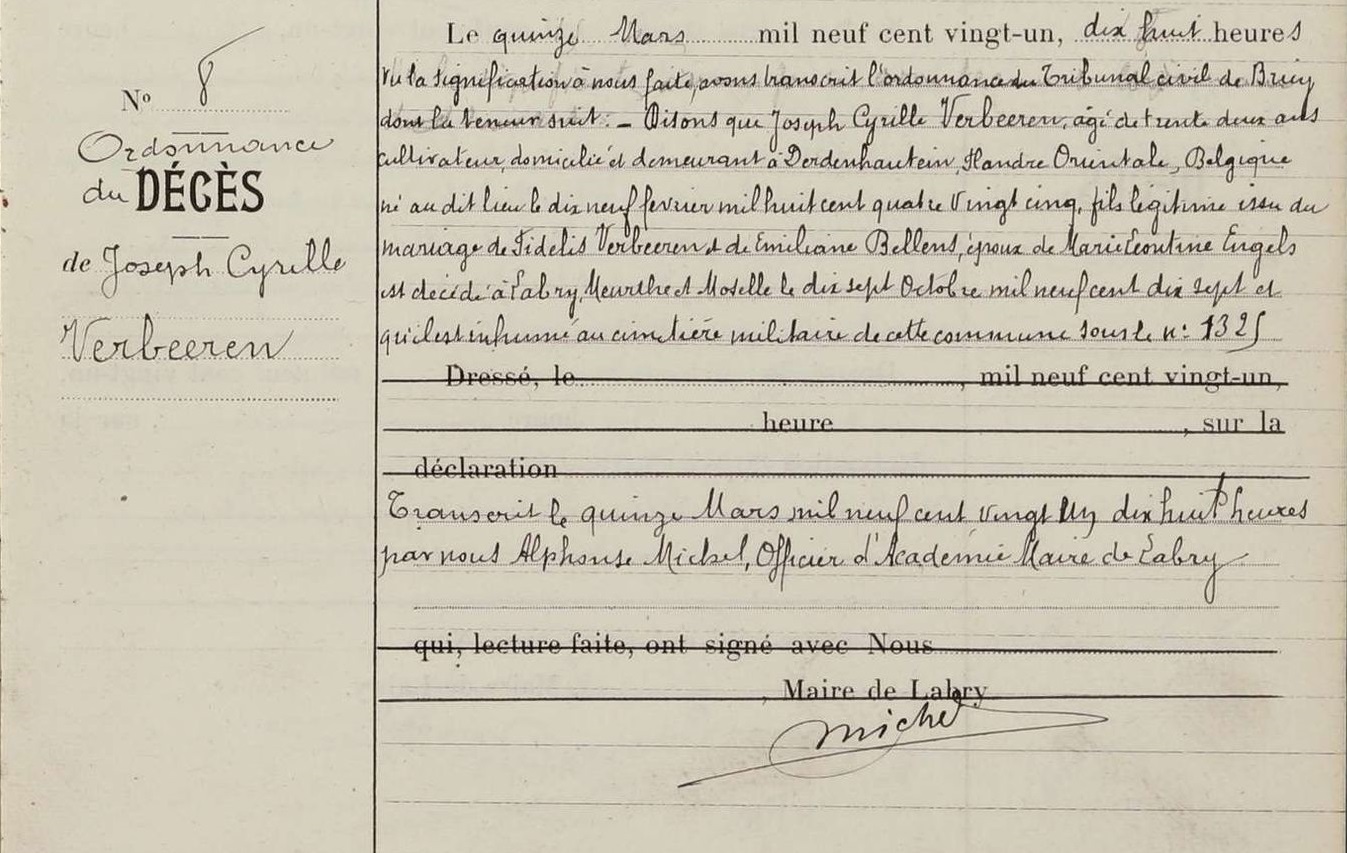 N° 8
Ordonnance
du DÉCÈS
de Joseph Cyrille
Verbeeren
Le quinze Mars mil neuf cent vingt-un, dix huit heures
Vu la signification à nous faite, avons transcrit l'ordonnance du Tribunal civil de Briey
dont la teneur suit : _ Disons que Joseph Cyrille Verbeeren, âgé de trente deux ans
cultivateur, domicilié et demeurant à Derdenhautein, Flandre Orientale, Belgique
né au dit lieu le dix neuf février mil huit cent quatre vingt cinq, fils légitime issu du
mariage de Fidelis Verbeeren et de Emiliane Bellens, époux de Marie Leontine Engels
est décédé à Labry, Meurthe et Moselle le dix sept Octobre mil neuf cent dix sept et
qu'il est inhumé au cimetière militaire de cette commune sous le n: 1325
Dressé, le , mil neuf cent vingt-un,
heure , sur la
déclaration
Transcrit le quinze Mars mil neuf cent vingt Un dix huit heures
par nous Alphonse Michel, Officier d'Académie Maire de Labry
qui, lecture faite, ont signé avec Nous
, Maire de Labry
Michel